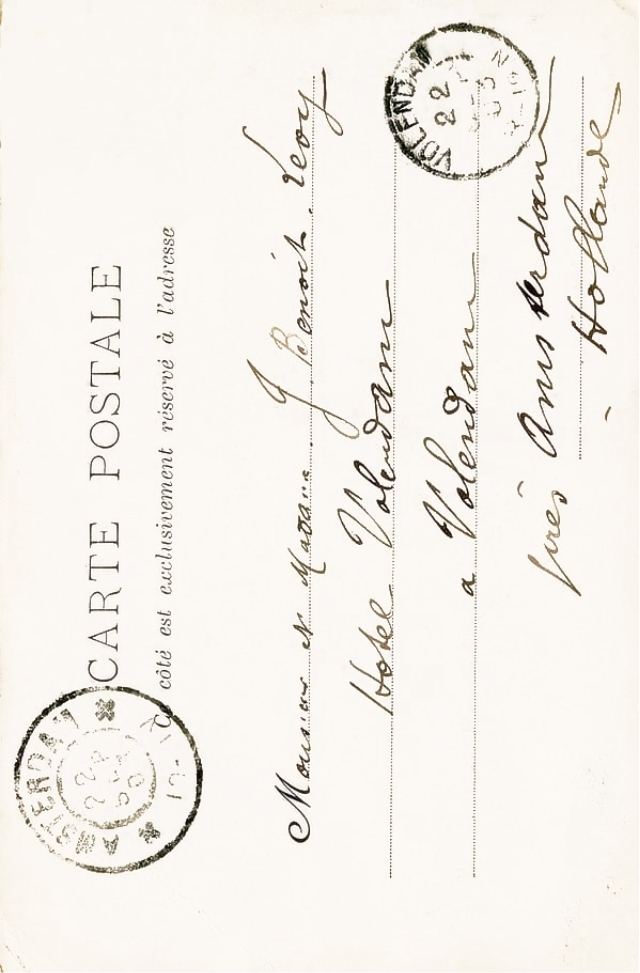 CARTE POSTALE
Ce côté est exclusivement réservé à l'adresse
Monsieur et Madame J. Benoit. Levy
Hotel Volendam
a Volendam
près Amsterdam
- Hollande
AMSTERDAM
22
VOLENDAM
22